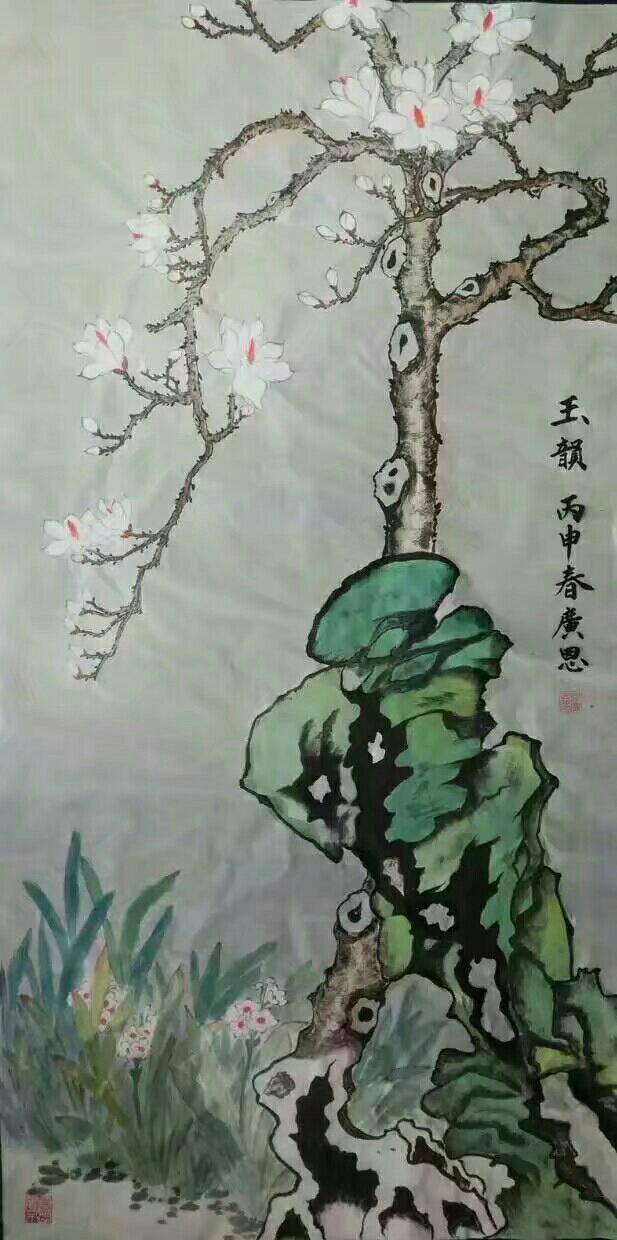 玉韻 丙申春廣恩